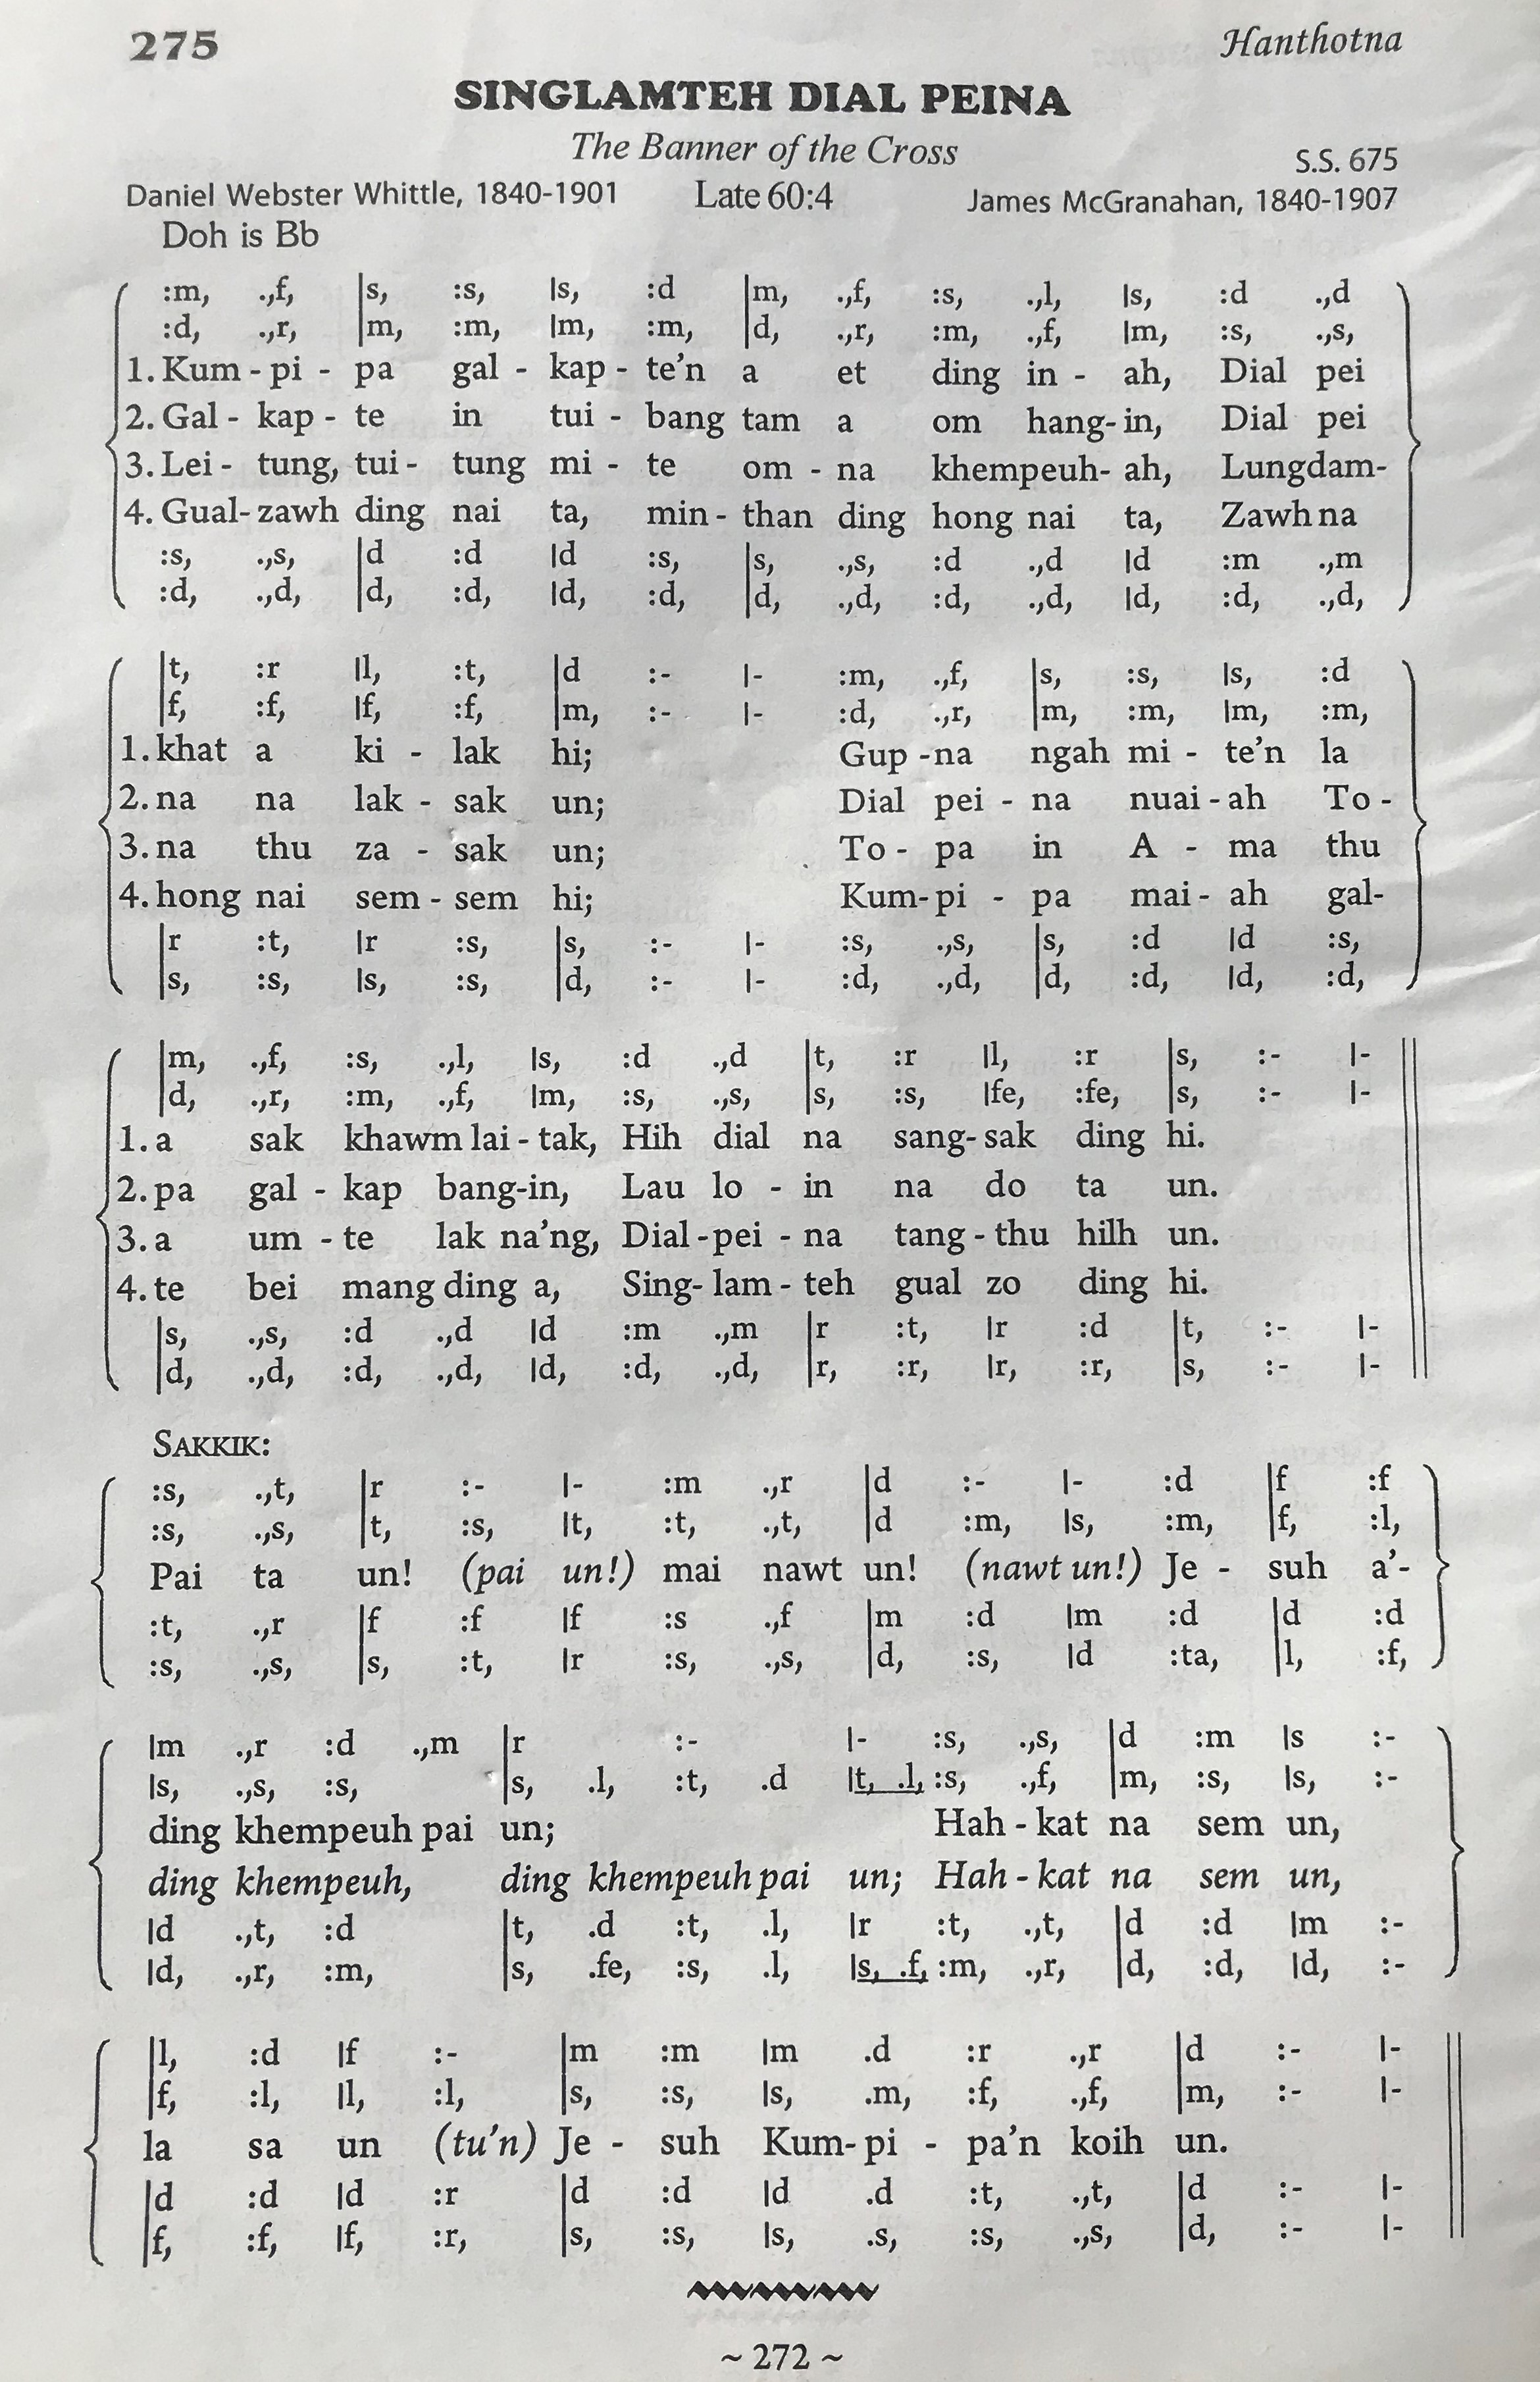 275 Hanthotna
SINGLAMTEH DIAL PEINA
The Banner of the Cross
S.S. 675
Daniel Webster Whittle, 1840-1901 Late 60:4 James McGranahan, 1840-1907
Doh is Bb
:m, .,f, |s, :s, ls, :d |m, .,f, :s, .,l, ls, :d .,d
:d, .,r, |m, :m, lm, :m, |d, .,r, :m, .,f, lm, :s, .,s,
1. Kum - pi - pa gal - kap - te'n a et ding in - ah, Dial pei
2. Gal - kap - te in tui - bang tam a om hang-in, Dial pei
3. Lei - tung, tui - tung mi - te om - na khempeuh- ah, Lungdam-
4. Gual- zawh ding nai ta, min - than ding hong nai ta, Zawh na
:s, .,s, |d :d ld :s, |s, .,s, :d .,d ld :m .,m
:d, .,d, |d, :d, ld, :d, |d, .,d, :d, .,d, ld, :d, .,d,
|t, :r ll, :t, |d :- l- :m, .,f, |s, :s, ls, :d
|f, :f, lf, :f, |m, :- l- :d, .,r, |m, :m, lm, :m,
1. khat a ki - lak hi; Gup -na ngah mi - te'n la
2. na na lak - sak un; Dial pei - na nuai - ah To -
3. na thu za - sak un; To - pa in A - ma thu
4. hong nai sem - sem hi; Kum- pi - pa mai - ah gal-
|r :t, lr :s, |s, :- l- :s, .,s, |s, :d ld :s,
|s, :s, ls, :s, |d, :- l- :d, .,d, |d, :d, ld, :d,
|m, .,f, :s, .,l, ls, :d .,d |t, :r ll, :r |s, :- l-
|d, .,r, :m, .,f, lm, :s, .,s, |s, :s, lfe, :fe, |s, :- l-
1. a sak khawm lai - tak, Hih dial na sang- sak ding hi.
2. pa gal - kap bang-in, Lau lo - in na do ta un.
3. a um - te lak na'ng, Dial -pei - na tang - thu hilh un.
4. te bei mang ding a, Sing- lam - teh gual zo ding hi.
|s, .,s, :d .,d ld :m .,m |r :t, lr :d |t, :- l-
|d, .,d, :d, .,d, ld, :d, .,d, |r, :r, lr, :r, |s, :- l-
SAKKIK:
:s, .,t, |r :- l- :m .,r |d :- l- :d |f :f
:s, .,s, |t, :s, lt, :t, .,t, |d :m, ls, :m, |f, :l,
Pai ta un! (pai un!) mai nawt un! (nawt un!) Je - suh a'-
:t, .,r |f :f lf :s .,f |m :d lm :d |d :d
:s, .,s, |s, :t, lr :s, .,s, |d, :s, ld :ta, |l, :f,
lm .,r :d .,m |r :- l- :s, .,s, |d :m ls :-
ls, .,s, :s, |s, .l, :t, .d lt, .l, :s, .,f, |m, :s, ls, :-
ding khempeuh pai un; Hah - kat na sem un,
ding khempeuh, ding khempeuh pai un; Hah - kat na sem un,
ld .,t, :d |t, .d :t, .l, lr :t, .,t, |d :d lm :-
ld, .,r, :m, |s, .fe, :s, .l, ls, .f, :m, .,r, |d, :d, ld, :-
|l, :d lf :- |m :m lm .d :r .,r |d :- l-
|f, :l, ll, :l, |s, :s, ls, .m, :f, .,f, |m, :- l-
la sa un (tu'n) Je - suh Kum- pi - pa'n koih un.
|d :d ld :r |d :d ld .d :t, .,t, |d :- l-
|f, :f, lf, :r, |s, :s, ls, .s, :s, .,s, |d, :- l-
~ 272 ~